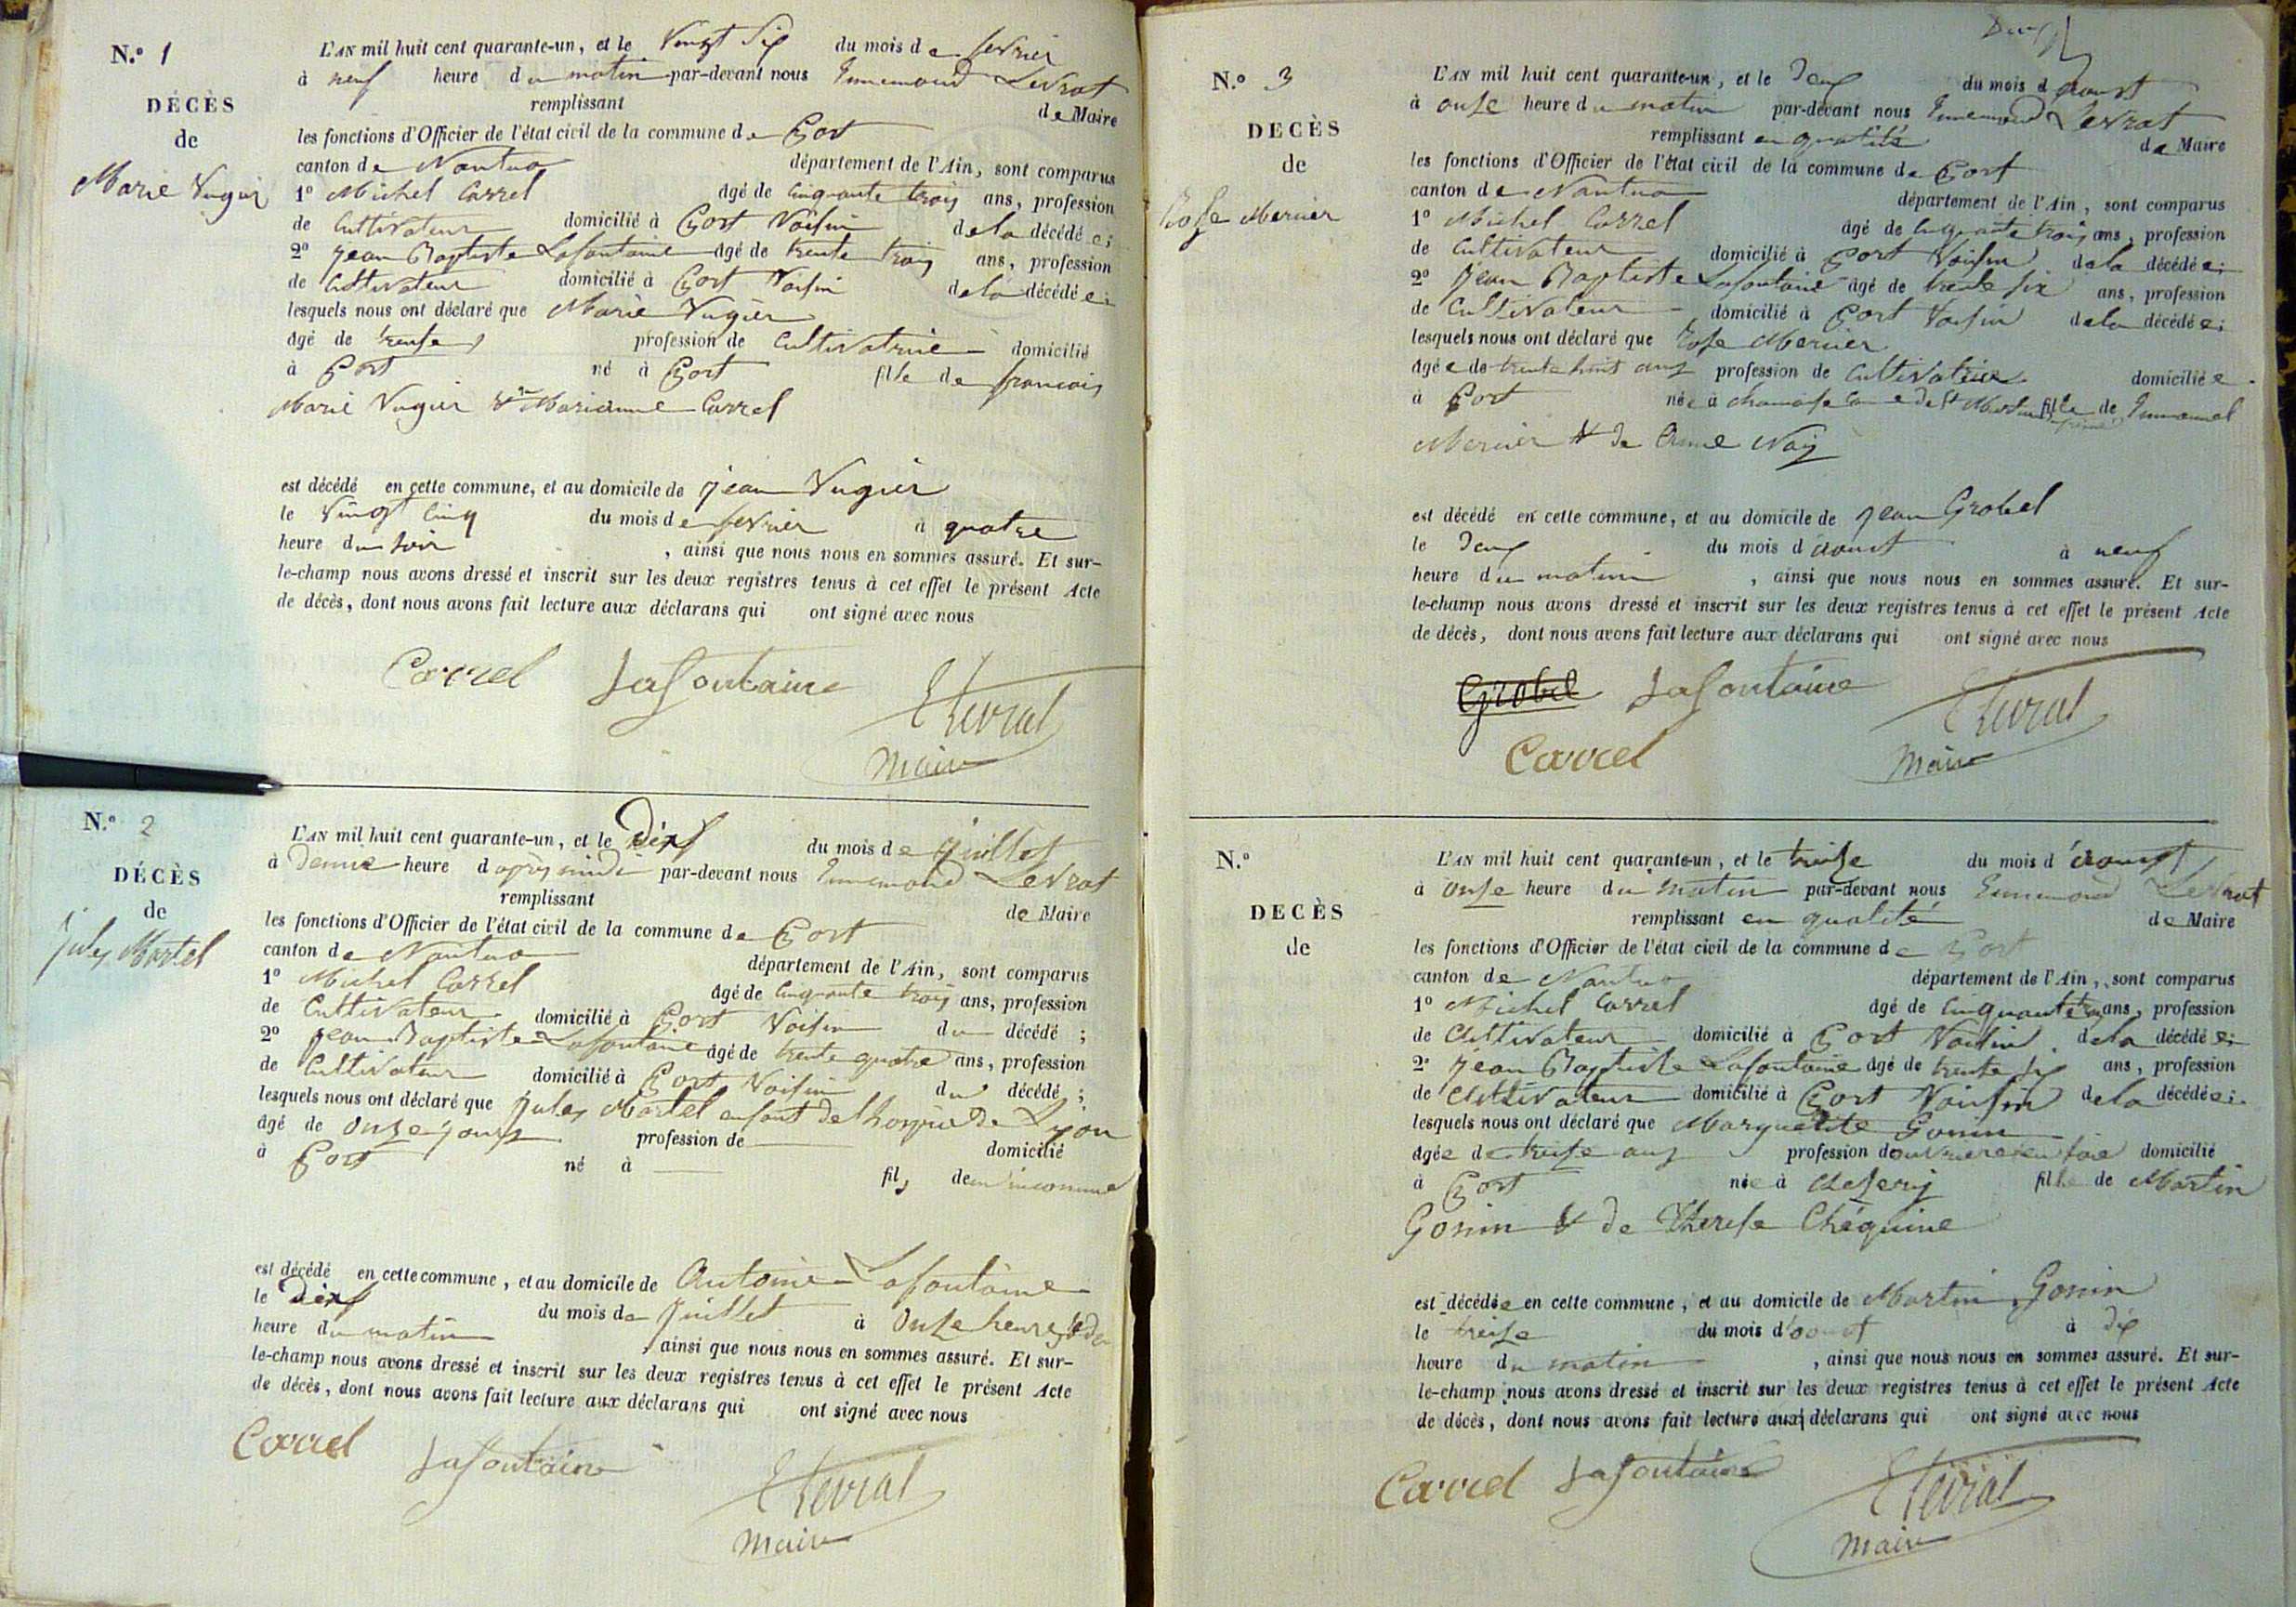 N.º 1
DÉCÈS
de
Marie Vugier
L'AN mil huit cent quarante-un, et le Vingt Six du mois de fevrier
à neuf heure du matin par-devant nous Ennemond Levrat
remplissant de Maire
les fonctions d'Officier de l'état civil de la commune de Port
canton de Nantua département de l'Ain, sont comparus
1º Michel Carrel âgé de Cinquante trois ans, profession
de Cultivateur domicilié à Port Voisin de la décédée;
2º Jean Baptiste Lafontaine âgé de trente trois ans, profession
de Cultivateur domicilié à Port Voisin de la décédée;
lesquels nous ont déclaré que Marie Vugier
âgé de profession de Cultivatrice domicilié
à Port né à Port fille de francois
Marie Vugier & Marianne Carrel
est décédé en cette commune, et au domicile de Jean Vugier
le Vingt Cinq du mois de fevrier à quatre
heure du soir , ainsi que nous nous en sommes assuré. Et sur-
le-champ nous avons dressé et inscrit sur les deux registres tenus à cet effet le présent Acte
de décès, dont nous avons fait lecture aux déclarans qui ont signé avec nous
Carrel Lafontaine ELevrat
Maire
N.º 2
DÉCÈS
de
Jules Martel
L'AN mil huit cent quarante-un, et le Dix du mois de Juillet
à heure d'après midi par-devant nous Ennemond Levrat
remplissant de Maire
les fonctions d'Officier de l'état civil de la commune de Port
canton de Nantua département de l'Ain, sont comparus
1º Michel Carrel âgé de Cinquante trois ans, profession
de Cultivateur domicilié à Port Voisin du décédé ;
2º Jean Baptiste Lafontaine âgé de trente quatre ans, profession
de Cultivateur domicilié à Port Voisin du décédé ;
lesquels nous ont déclaré que Jules Martel enfant de l'hospice de Lyon
âgé de Onze jours profession de domicilié
à Port né à fils de inconnue
est décédé en cette commune, et au domicile de Antoine Lafontaine
le Dix du mois de Juillet à Onze heures
heure du matin , ainsi que nous nous en sommes assuré. Et sur-
le-champ nous avons dressé et inscrit sur les deux registres tenus à cet effet le présent Acte
de décès, dont nous avons fait lecture aux déclarans qui ont signé avec nous
Carrel Lafontaine ELevrat
Maire
N.º 3
DECÈS
de
Rose Mercier
L'AN mil huit cent quarante-un, et le Deux du mois d'aoust
à onze heure du matin par-devant nous Ennemond Levrat
remplissant en qualité de Maire
les fonctions d'Officier de l'état civil de la commune de Port
canton de Nantua département de l'Ain, sont comparus
1º Michel Carrel âgé de Cinquante trois ans, profession
de Cultivateur domicilié à Port Voisin de la décédée;
2º Jean Baptiste Lafontaine âgé de trente six ans, profession
de Cultivateur domicilié à Port Voisin de la décédée;
lesquels nous ont déclaré que Rose Mercier
âgée de trente huit ans profession de Cultivatrice domiciliée
à Port née à fille de Emmanuel
Mercier & de Anne
est décédé en cette commune, et au domicile de Jean Grobel
le Deux du mois d'aoust à neuf
heure du matin , ainsi que nous nous en sommes assuré. Et sur-
le-champ nous avons dressé et inscrit sur les deux registres tenus à cet effet le présent Acte
de décès, dont nous avons fait lecture aux déclarans qui ont signé avec nous
Grobel Lafontaine ELevrat
Carrel Maire
N.º
DECÈS
de
L'AN mil huit cent quarante-un, et le treize du mois d'aoust
à onze heure du matin par-devant nous Ennemond Levrat
remplissant en qualité de Maire
les fonctions d'Officier de l'état civil de la commune de Port
canton de Nantua département de l'Ain, sont comparus
1º Michel Carrel âgé de Cinquante trois ans, profession
de Cultivateur domicilié à Port Voisin de la décédée;
2º Jean Baptiste Lafontaine âgé de trente six ans, profession
de Cultivateur domicilié à Port Voisin de la décédée;
lesquels nous ont déclaré que Marguerite Gonin
âgée de treize ans profession de ouvriere en soie domicilié
à Port née à chesery fille de Martin
Gonin & de Therese Chéquine
est décédée en cette commune, et au domicile de Martin Gonin
le treize du mois d'aoust à dix
heure du matin , ainsi que nous nous en sommes assuré. Et sur-
le-champ nous avons dressé et inscrit sur les deux registres tenus à cet effet le présent Acte
de décès, dont nous avons fait lecture aux déclarans qui ont signé avec nous
Carrel Lafontaine ELevrat
Maire